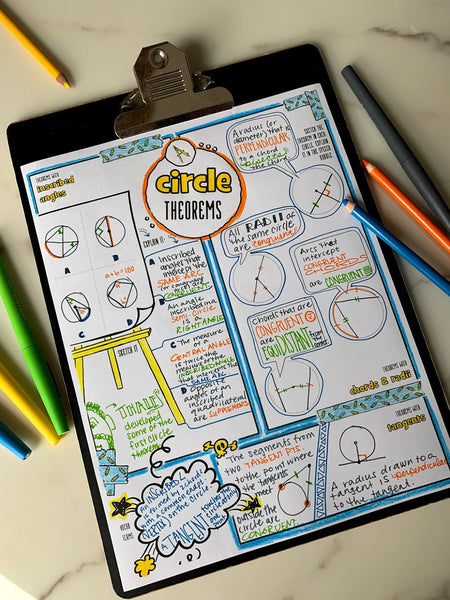 THEOREMS WITH
inscribed
angles
circle
THEOREMS
A radius (or
diameter) that is
PERPENDICULAR
to a chord
bisects
the chord
SKETCH THE
THEOREM IN EACH
CIRCLE. EXPLAIN
IT IN THE SPEECH
BUBBLE.
A
B
C
D
a+b=180
EXPLAIN IT:
A Inscribed
angles that
intercept the
SAME ARC
are
CONGRUENT
B An angle
inscribed in a
semi circle
is a
RIGHT ANGLE
C The measure
of a
CENTRAL ANGLE
is twice the
measure of the
INSCRIBED ANGLE
that intercepts the
SAME ARC
D Opposite
angles of an
inscribed
quadrilateral
are
SKETCH IT
All RADII of
the same circle
are congruent
Arcs that
intercept
CONGRUENT
CHORDS
are CONGRUENT
Chords that are
CONGRUENT
are
EQUIDISTANT
from the
center
THEOREMS WITH
chords & radii
THALES
developed
some of the
first circle
theorems
VOCAB
TERMS
An INSCRIBED
is formed by
with a common
VERTEX on the circle
A TANGENT touches
the segments from
two TANGENT PTS.
to the point where
the tangents
meet
outside the
circle are
CONGRUENT
THEOREMS WITH
tangents
A radius drawn to a
tangent is perpendicular
to the tangent.